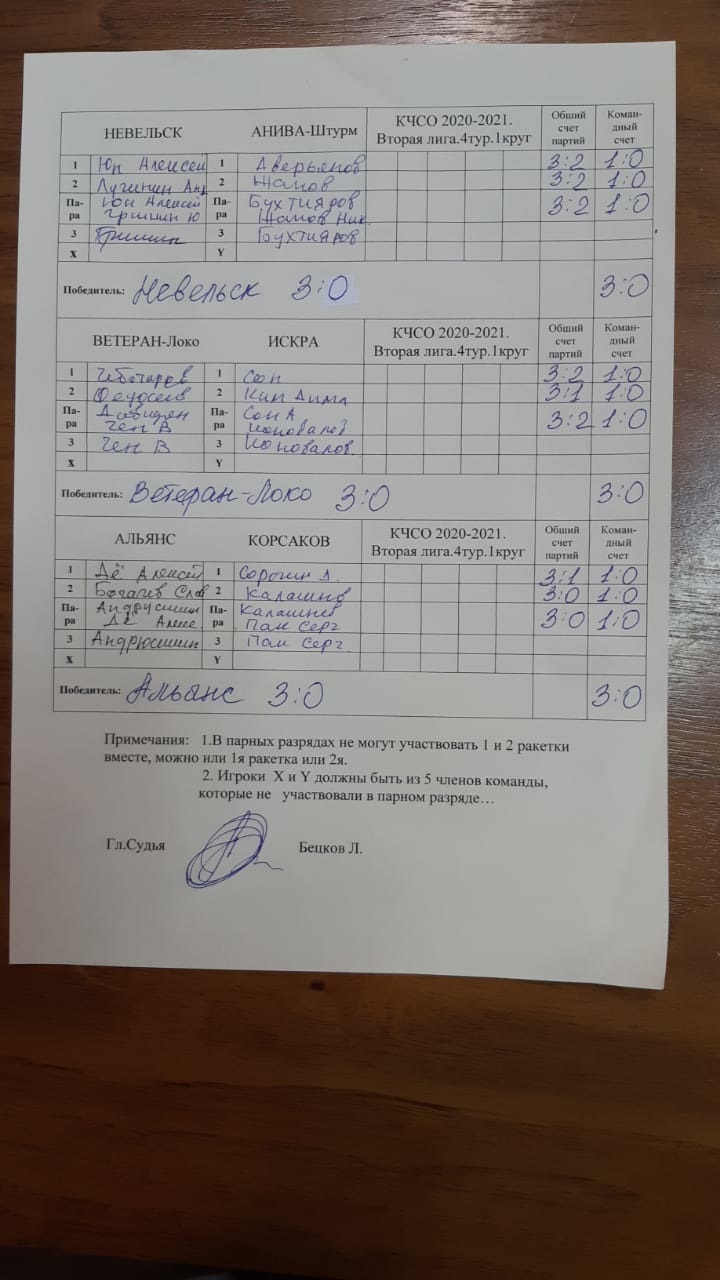 НЕВЕЛЬСК АНИВА-Штурм КЧСО 2020-2021. Вторая лига.4тур.1круг Общий счет партий Коман-дный счет
1 Юн Алексей 1 Аверьянов 3:2 1:0
2 Лугинин Анд 2 Жамов 3:2 1:0
Па-ра Юн Алексей Гришин Ю Па-ра Бухтияров Жамов Ник. 3:2 1:0
3 Гришин 3 Бухтияров
X Y
Победитель: Невельск 3:0 3:0
ВЕТЕРАН-Локо ИСКРА КЧСО 2020-2021. Вторая лига.4тур.1круг Общий счет партий Коман-дный счет
1 Чеботарев 1 Сон 3:2 1:0
2 Федосеев 2 Ким Дима 3:1 1:0
Па-ра Давидян Чен В Па-ра Сон А Коновалов 3:2 1:0
3 Чен В 3 Коновалов.
X Y
Победитель: Ветеран-Локо 3:0 3:0
АЛЬЯНС КОРСАКОВ КЧСО 2020-2021. Вторая лига.4тур.1круг Общий счет партий Коман-дный счет
1 Дё Алексей 1 Сорокин 3:1 1:0
2 Богачев Слав 2 Калашнов 3:0 1:0
Па-ра Андрюшин Дё Алексе Па-ра Калашнов Пак Серг 3:0 1:0
3 Андрюшин 3 Пак Серг.
X Y
Победитель: Альянс 3:0 3:0
Примечания: 1.В парных разрядах не могут участвовать 1 и 2 ракетки
вместе, можно или 1я ракетка или 2я.
2. Игроки X и Y должны быть из 5 членов команды,
которые не участвовали в парном разряде…
Гл.Судья Бецков Л.